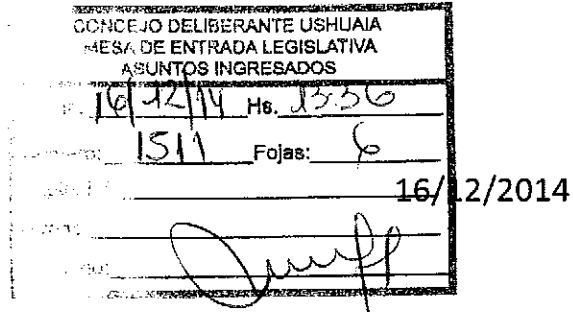 CONCEJO DELIBERANTE USHUAIA
MESA DE ENTRADA LEGISLATIVA
ASUNTOS INGRESADOS
16/12/14 Hs. 13:36
1511 Fojas: 6
16/12/2014